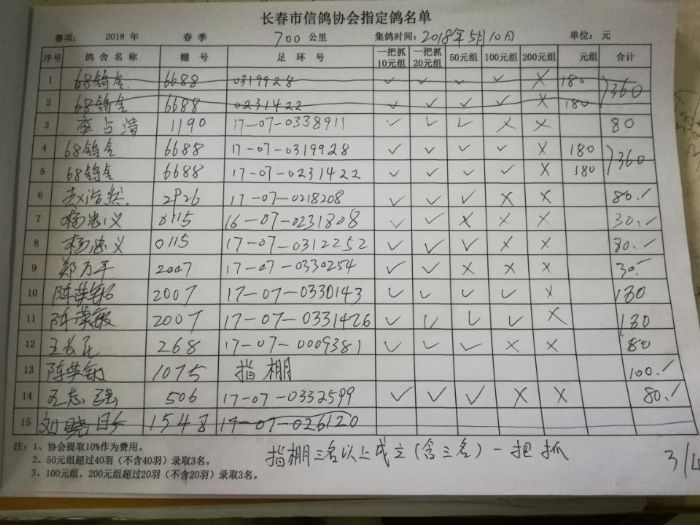 长春市信鸽协会指定鸽名单
赛项: 2018 年 春季 700 公里 集鸽时间: 2018年5月10日 单位: 元
序号 鸽舍名称 棚号 足环号 一把抓10元组 一把抓20元组 50元组 100元组 200元组 元组 合计
1 68鸽舍 6688 0319928 ✓ ✓ ✓ ✓ × 180 360
2 68鸽舍 6688 0231422 ✓ ✓ ✓ ✓ × 180
3 李占清 1190 17-07-0338911 ✓ ✓ ✓ × × 80
4 68鸽舍 6688 17-07-0319928 ✓ ✓ ✓ ✓ × 180 360
5 68鸽舍 6688 17-07-0231422 ✓ ✓ ✓ ✓ × 180
6 2926 17-07-0218208 ✓ ✓ ✓ × × 80.-
7 杨忠义 0115 16-07-0231808 ✓ ✓ × × × 30.-
8 杨忠义 0115 17-07-0312252 ✓ ✓ ✓ × × 80.-
9 郑万平 2007 17-07-0330254 ✓ ✓ × × × 30.-
10 2007 17-07-0330143 ✓ ✓ ✓ ✓ × 130
11 陈荣敏 2007 17-07-0331426 ✓ ✓ ✓ ✓ × 130
12 268 17-07-0009381 ✓ ✓ ✓ × × 80
13 1075 指棚 100.-
14 王志强 506 17-07-0332599 ✓ ✓ ✓ × × 80.-
15 1548 17-07-026120
注: 1、协会提取10%作为费用。
2、50元组超过40羽(不含40羽)录取3名。
3、100元组、200元组超过20羽(不含20羽)录取3名。
指棚三名以上成立(含三名)一把抓